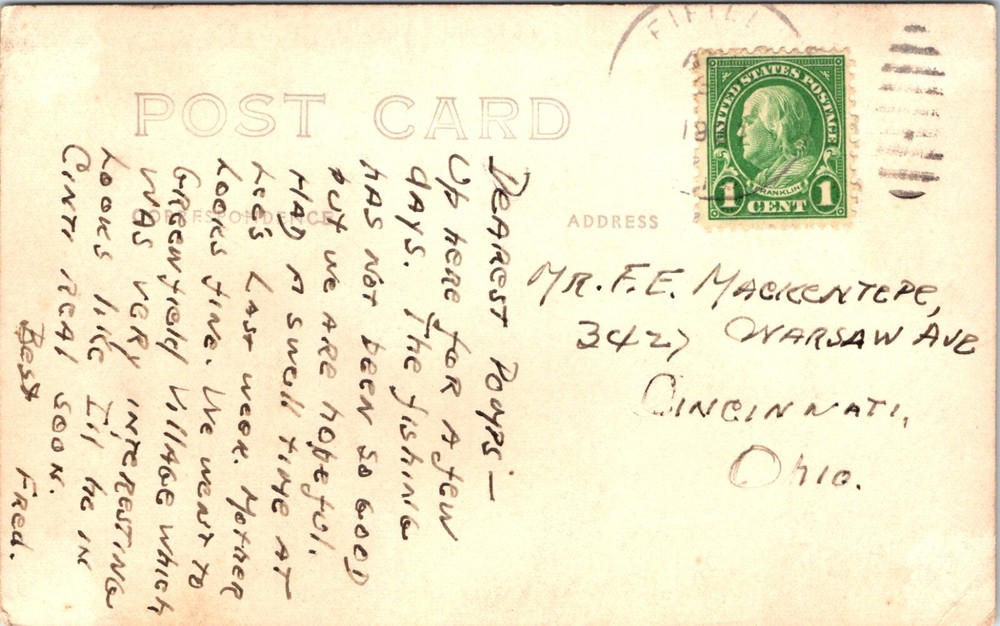 POST CARD
CORRESPONDENCE
ADDRESS
FIFIEL
18
UNITED STATES POSTAGE
FRANKLIN
1 CENT 1
DEAREST POMPS—
UP HERE FOR A FEW
DAYS. THE FISHING
HAS NOT BEEN SO GOOD
BUT WE ARE HOPEFUL.
HAD A SWELL TIME AT
LEE'S LAST WEEK. MOTHER
LOOKS FINE. WE WENT TO
GREENFIELD VILLAGE WHICH
WAS VERY INTERESTING
LOOKS LIKE I'LL BE IN
CINTI REAL SOON.
BEST FRED.
MR. F.E. MACKENTEPE,
3427 WARSAW AVE
CINCINNATI,
OHIO.